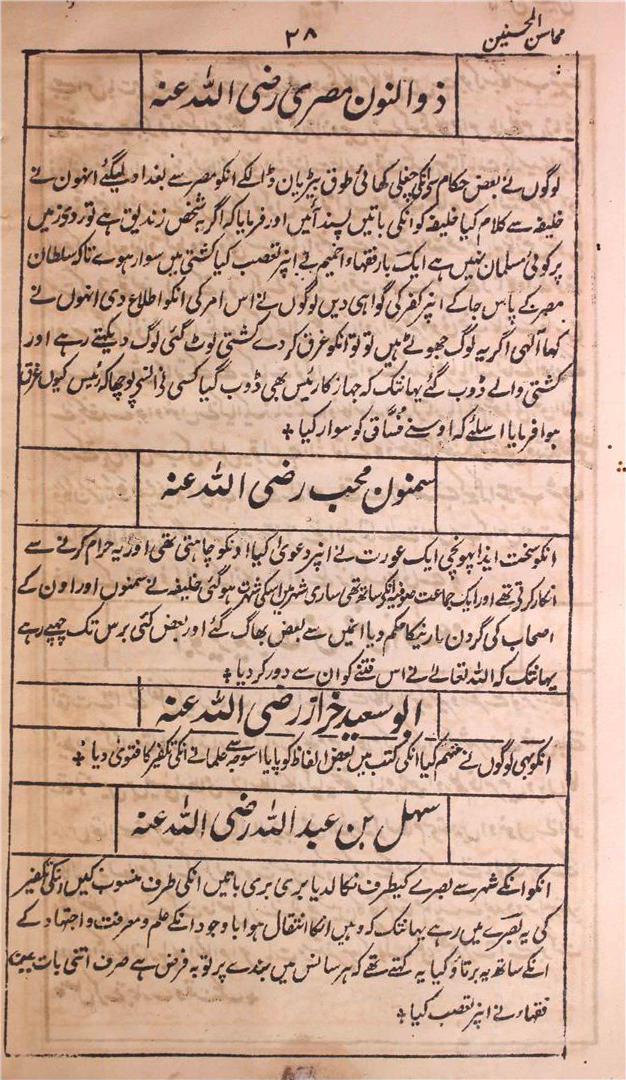 محاسن المحسنین
۲۸
ذوالنون مصری رضی اللہ عنہ
لوگوں نے بعض حکام سے انکی چغلی کھائی طوق بیڑیان ڈالکے انکو مصر سے بغداد لیگئے انہون نے
خلیفہ سے کلام کیا خلیفہ کو انکی باتیں پسند آئیں اور فرمایا کہ اگر یہ شخص زندیق ہے تو روی زمین
پر کوئی مسلمان نہیں ہے ایک بار فقہاء اخمیم نے انپر تعصب کیا کشتی میں سوار ہوے تاکہ سلطان
مصر کے پاس جاکے انپر کفر کی گواہی دیں لوگوں نے اس امر کی انکو اطلاع دی انہوں نے
کہا الہی اگر یہ لوگ جھوٹے ہیں تو تو انکو غرق کر دے کشتی لوٹ گئی لوگ دیکہتے رہے اور
کشتی والے ڈوب گئے یہانتک کہ جہاز کا رئیس بھی ڈوب گیا کسی نے انسے پوچہا کہ رئیس کیوں غرق
ہوا فرمایا اسلئے کہ اوسنے فساق کو سوار کیا ✤
سمنون محب رضی اللہ عنہ
انکو سخت ایذا پہونچی ایک عورت نے انپر دعویٰ کیا ادنکو چاہتی تھی اور یہ حرام کرنے سے
انکار کرتے تھے اور ایک جماعت صوفیہ انکے ساتھ تھی ساری شہر میں اسکی شہرت ہوگئی خلیفہ نے سمنوں اور اون کے
اصحاب کی گردن مارنیکا حکم دیا انمیں سے بعض بھاگ گئے اور بعض کئی برس تک چھپے رہے
یہانتک کہ اللہ تعالےٰ نے اس فتنے کو ان سے دور کر دیا ✤
ابو سعید خراز رضی اللہ عنہ
انکو بھی لوگوں نے متہم کیا انکی کتب میں بعض الفاظ کو پایا اسوجہ سے علما نے انکی تکفیر کا فتویٰ دیا ✤
سہل بن عبد اللہ رضی اللہ عنہ
انکو انکے شہر سے بصرے کیطرف نکالدیا بری بری باتیں انکی طرف منسوب کیں انکی تکفیر
کی یہ بصرے میں رہے یہانتک کہ وہیں انکا انتقال ہوا با وجود انکے علم و معرفت و اجتہاد کے
انکے ساتھ یہ برتاؤ کیا یہ کہتے تھے کہ ہر سانس میں بندے پر توبہ فرض ہے صرف اتنی بات میں
فقہاء نے انپر تعصب کیا ✤